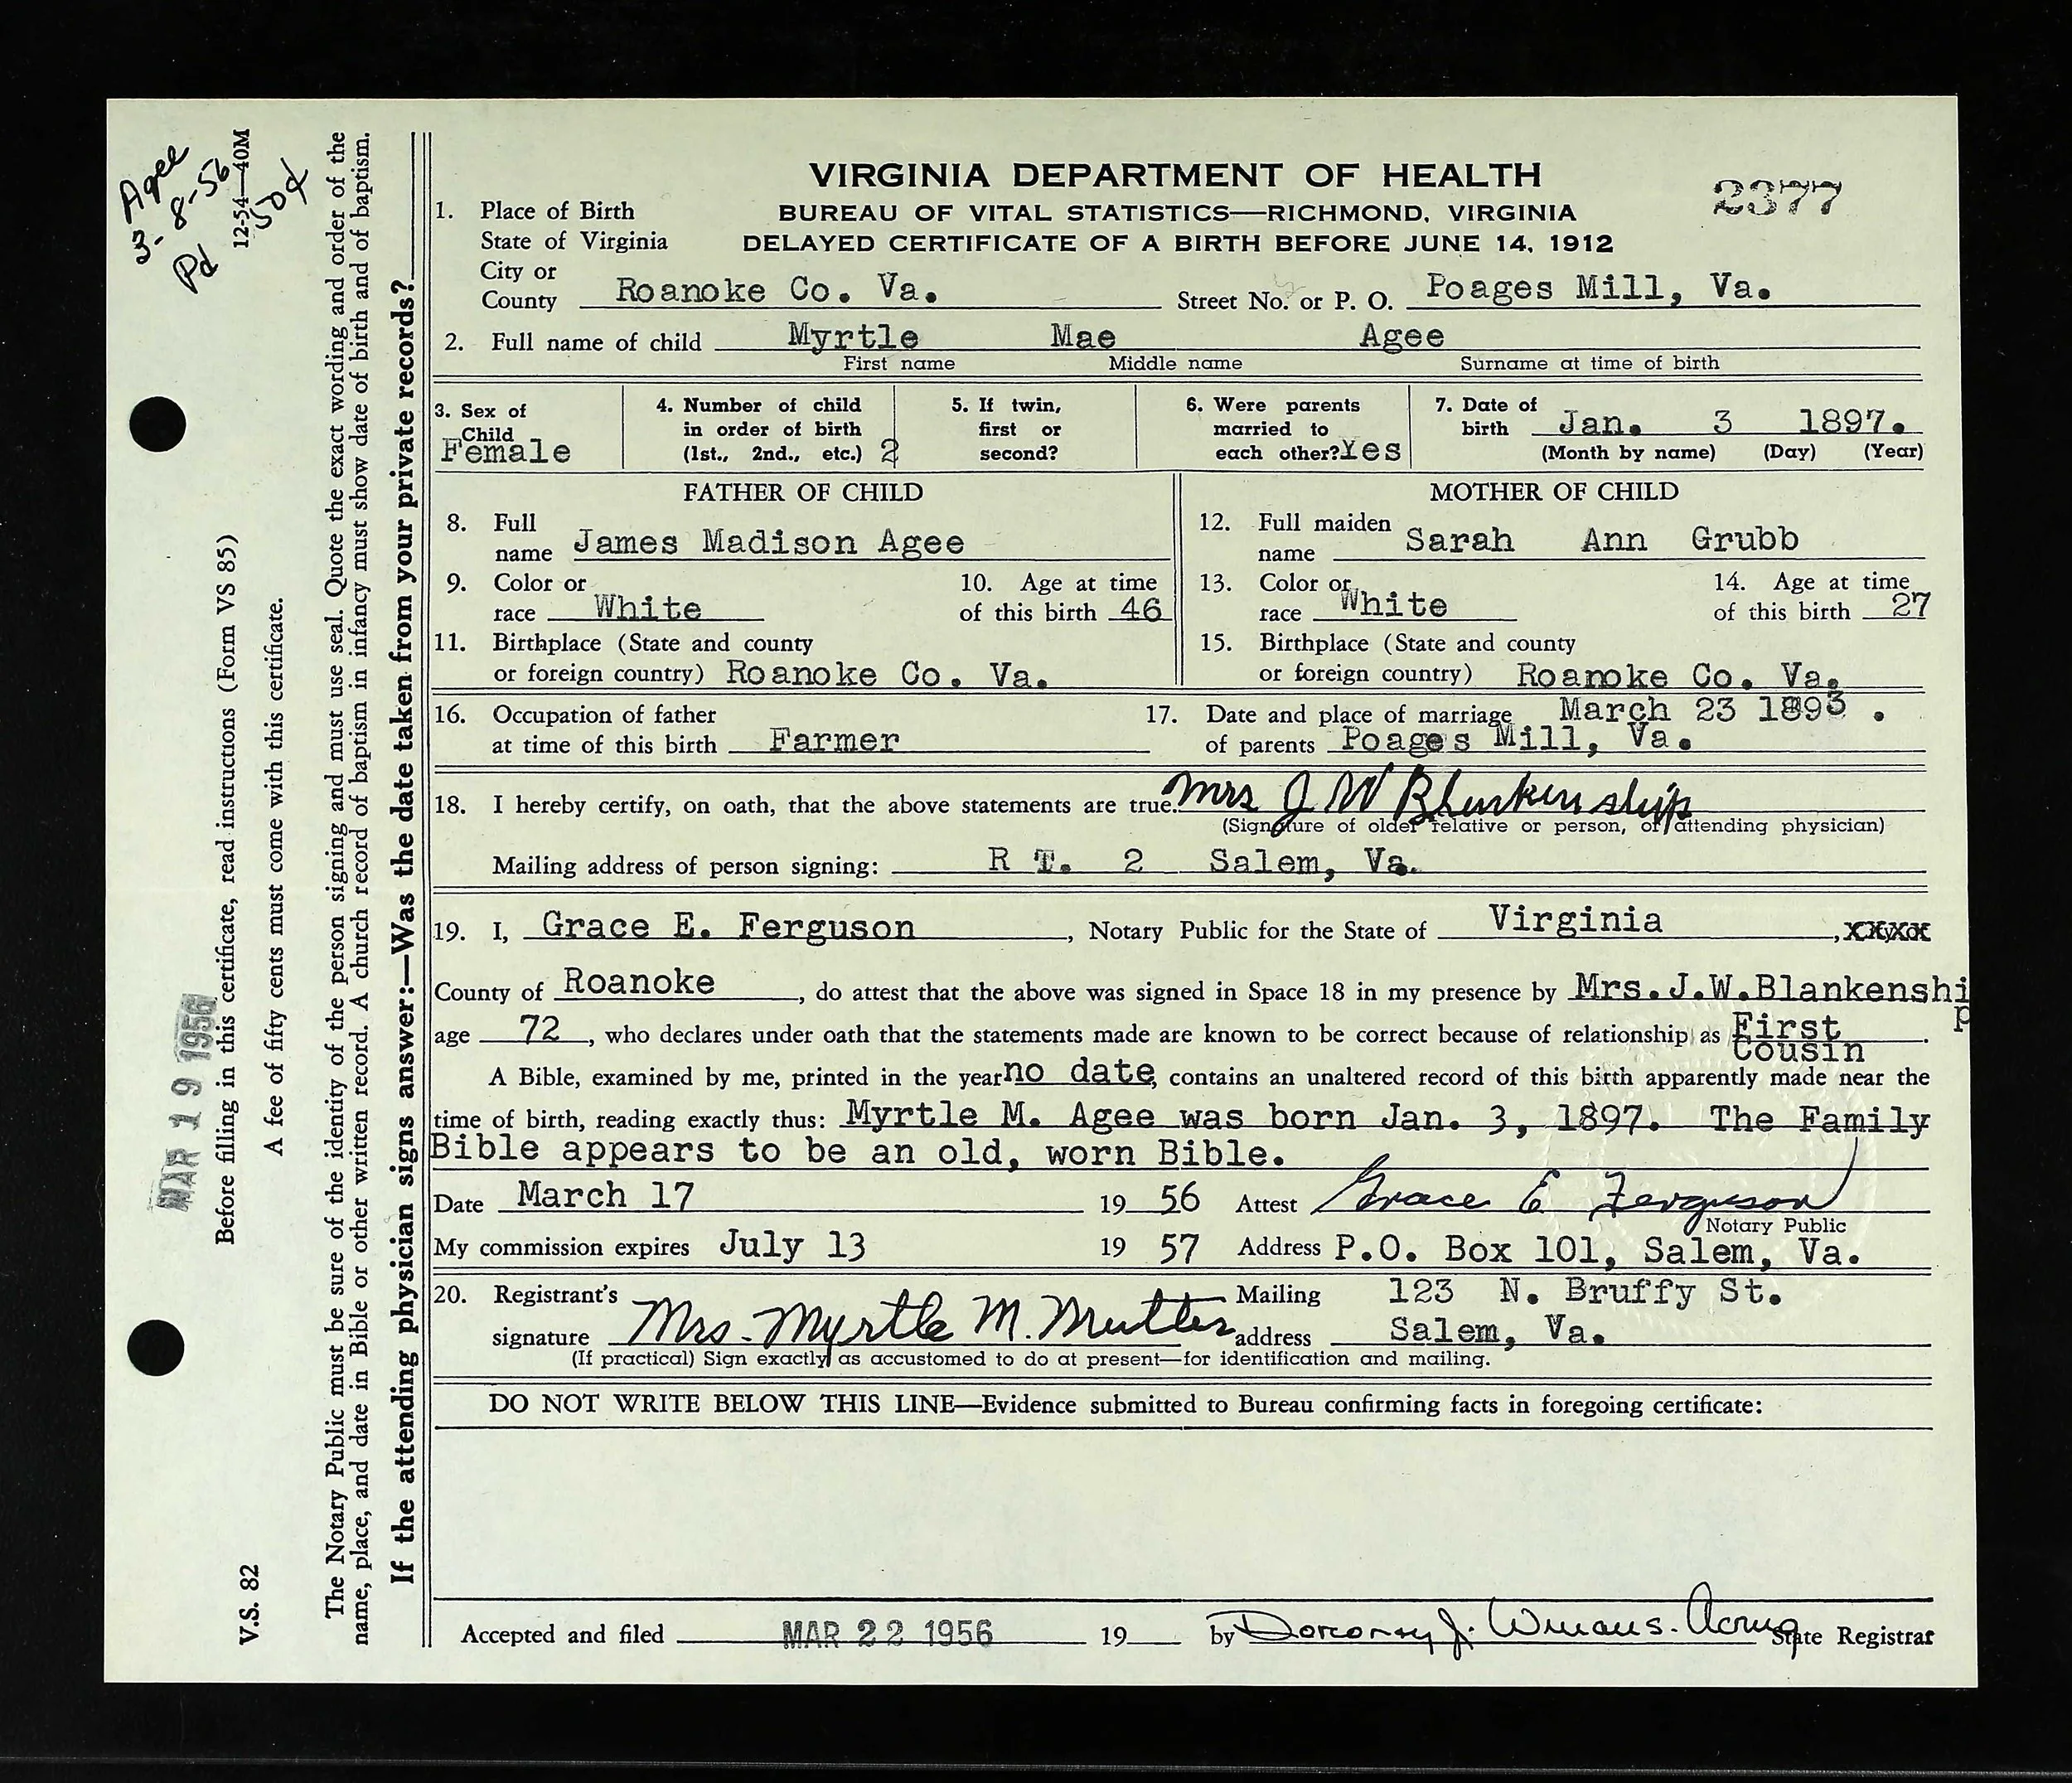 Agee
3-8-56
Pd 50¢
12-54—40M
MAR 19 1956
Before filling in this certificate, read instructions (Form VS 85)
A fee of fifty cents must come with this certificate.
V.S. 82
The Notary Public must be sure of the identity of the person signing and must use seal. Quote the exact wording and order of the
name, place, and date in Bible or other written record. A church record of baptism in infancy must show date of birth and of baptism.
If the attending physician signs answer:—Was the date taken from your private records?
VIRGINIA DEPARTMENT OF HEALTH
BUREAU OF VITAL STATISTICS—RICHMOND, VIRGINIA
DELAYED CERTIFICATE OF A BIRTH BEFORE JUNE 14, 1912
2377
1. Place of Birth
State of Virginia
City or
County Roanoke Co. Va. Street No. or P. O. Poages Mill, Va.
2. Full name of child Myrtle Mae Agee
First name Middle name Surname at time of birth
3. Sex of Child Female
4. Number of child in order of birth (1st., 2nd., etc.) 2
5. If twin, first or second?
6. Were parents married to each other? Yes
7. Date of birth Jan. 3 1897.
(Month by name) (Day) (Year)
FATHER OF CHILD
8. Full name James Madison Agee
9. Color or race White
10. Age at time of this birth 46
11. Birthplace (State and county
or foreign country) Roanoke Co. Va.
MOTHER OF CHILD
12. Full maiden name Sarah Ann Grubb
13. Color or race White
14. Age at time of this birth 27
15. Birthplace (State and county
or foreign country) Roanoke Co. Va.
16. Occupation of father
at time of this birth Farmer
17. Date and place of marriage March 23 1893.
of parents Poages Mill, Va.
18. I hereby certify, on oath, that the above statements are true. Mrs J W Blankenship
(Signature of older relative or person, or attending physician)
Mailing address of person signing: R T. 2 Salem, Va.
19. I, Grace E. Ferguson, Notary Public for the State of Virginia, xxxxx
County of Roanoke, do attest that the above was signed in Space 18 in my presence by Mrs.J.W.Blankenship
age 72, who declares under oath that the statements made are known to be correct because of relationship as First Cousin.
A Bible, examined by me, printed in the year no date, contains an unaltered record of this birth apparently made near the
time of birth, reading exactly thus: Myrtle M. Agee was born Jan. 3, 1897. The Family
Bible appears to be an old, worn Bible.
Date March 17 19 56 Attest Grace E Ferguson
Notary Public
My commission expires July 13 19 57 Address P.O. Box 101, Salem, Va.
20. Registrant's signature Mrs. Myrtle M. Mutter Mailing address 123 N. Bruffy St.
Salem, Va.
(If practical) Sign exactly as accustomed to do at present—for identification and mailing.
DO NOT WRITE BELOW THIS LINE—Evidence submitted to Bureau confirming facts in foregoing certificate:
Accepted and filed MAR 22 1956 19 by J. State Registrar